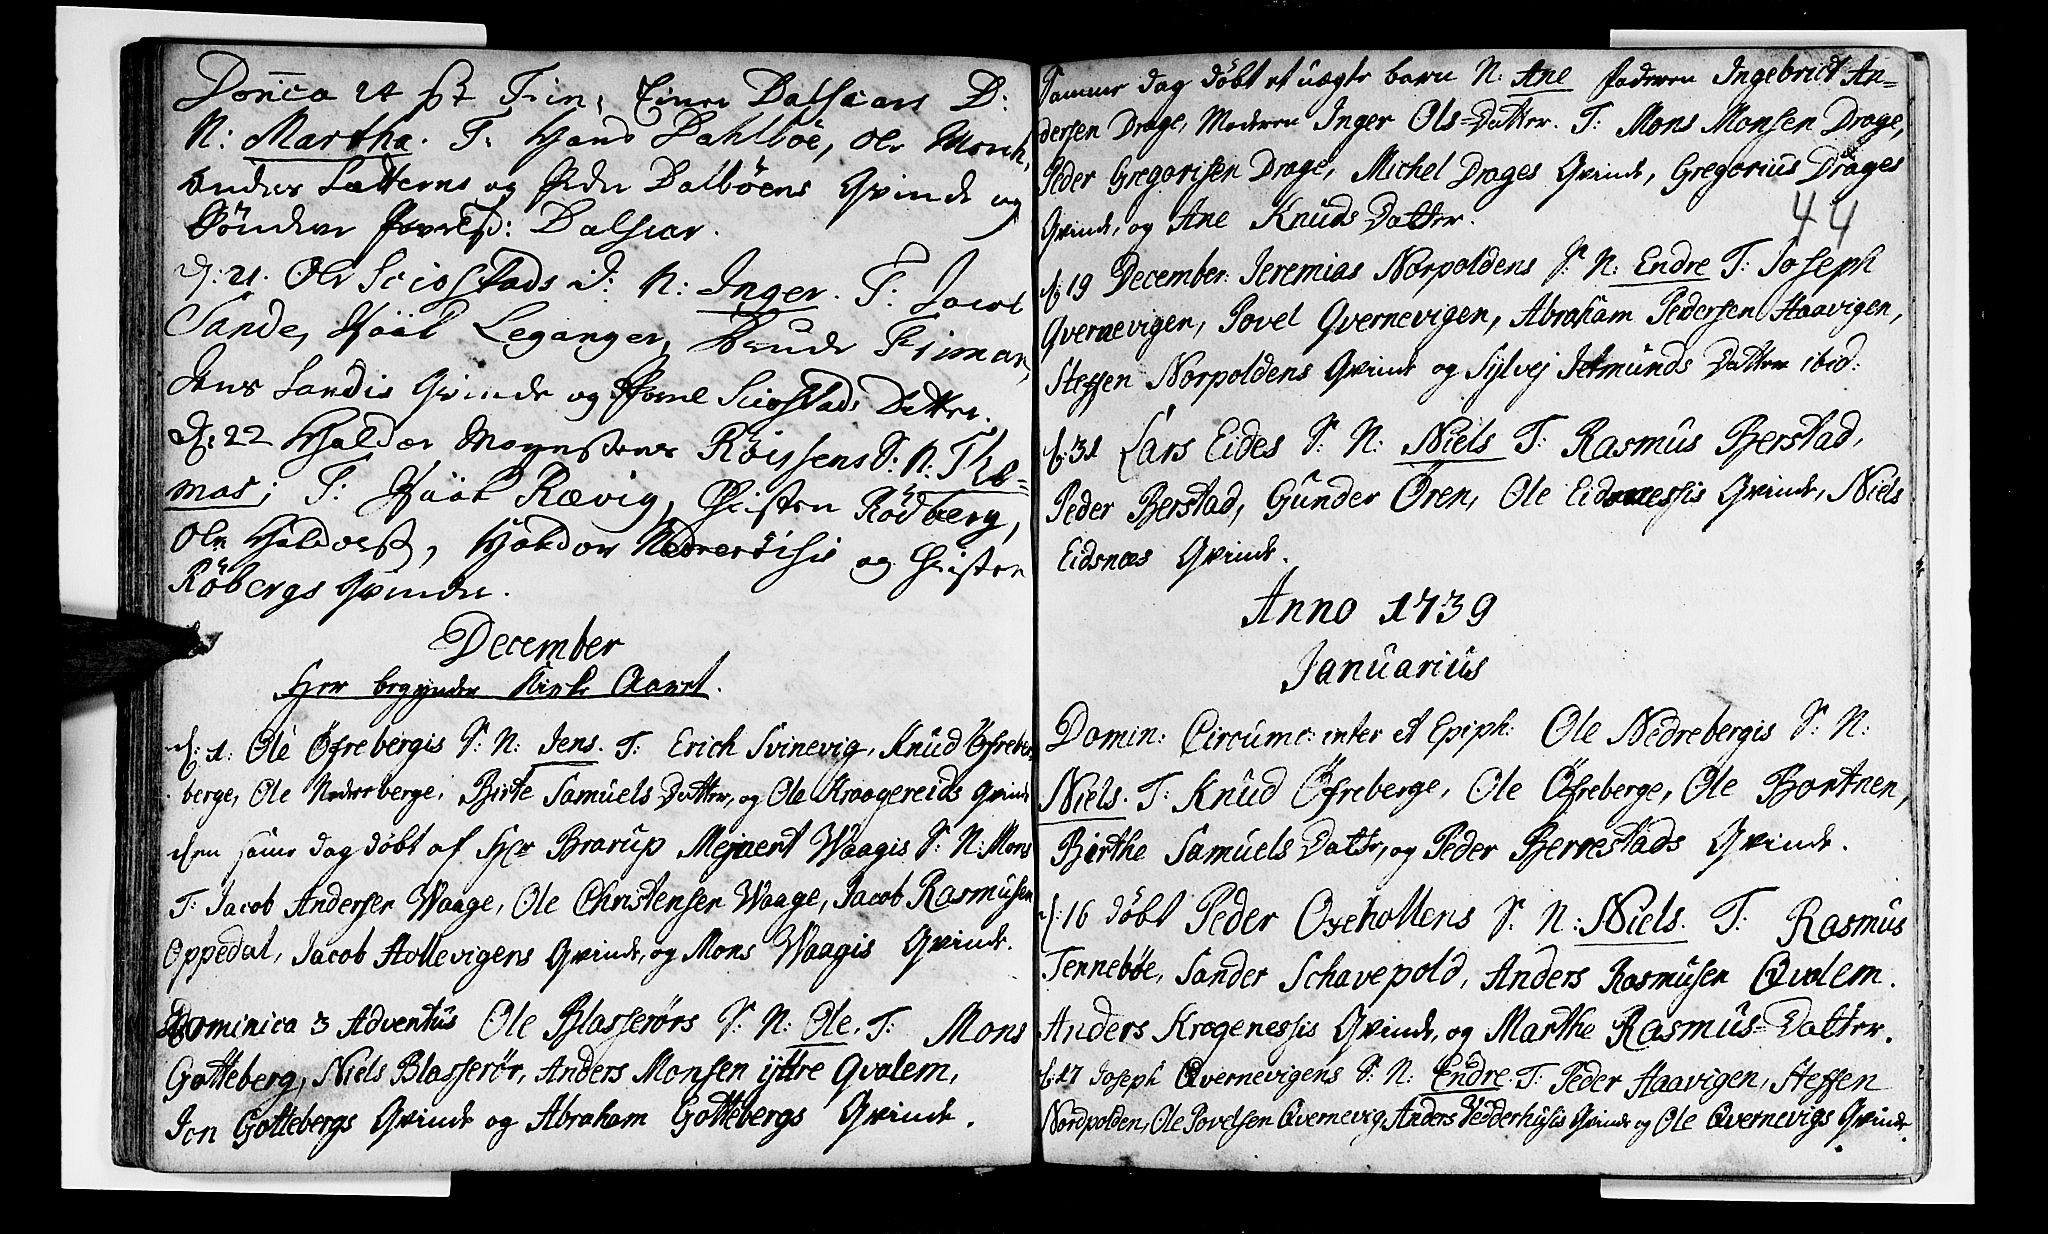 Domca 24 pt Trin: Einer Dalscars D:
N: Martha. T: Hans Dahlböe, Ole
Anders Sætterns og Peder Dalböens Qvinde og
Dalscar.
d: 21. Ole Sciostads D: N: Inger. T: Jacob
Sande, Leganger,
Jens Sandis Qvinde og Sciostads Datter.
d: 22 Haldor Röysens S: N: Tho=
mas; T: Rævig, Christen Rödberg,
Ole Haldorss, Haldor og Christen
Röbergs Qvinder.
December
Her begynder Kirke Aaret.
d: 1. Ole Öfrebergis S: N: Jens. T: Erich Svinevig, Knud Öfrebe
berge, Ole Nedreberge, Birte Samuels Datter, og Ole Kraagereids Qvinde
den same dag döbt af Hr Brarup Mejnert Waagis S: N: Mons
T: Jacob Andersen Waage, Ole Christensen Waage, Jacob Rasmusen
Oppedal, Jacob Hollevigens Qvinde, og Mons Waagis Qvinde.
Dominica 3 Adventus Ole Blasserörs S: N: Ole. T: Mons
Gotteberg, Niels Blasserör, Anders Monsen yttre Qvalem,
Jon Gottebergs Qvinde og Abraham Gottebergs Qvinde.
Samme dag döbt et uægte barn N: Ane faderen Ingebrict An=
dersen Drage, Moderen Inger Ols=Datter. T: Mons Monsen Drage,
Peder Gregorisen Drage, Michel Drages Qvinde, Gregorius Drages
Qvinde, og Ane Knuds Datter.
44
d: 19 December: Jeremias Norpoldens S: N: Endre T: Joseph
Qvernevigen, Povel Qvernevigen, Abraham Pedersen Haavigen,
Steffen Norpoldens Qvinde og Sylvej Jetmunds Datter ibid:
d: 31 Lars Eides S: N: Niels T: Rasmus Berstad,
Peder Berstad, Gunder Ören, Ole Qvinde, Niels
Eidsnæs Qvinde.
Anno 1739
Januarius
Domin: Circumc: inter et Epiph: Ole Nedrebergis S: N:
Niels. T: Knud Öfreberge, Ole Öfreberge, Ole Bortnen,
Birthe Samuels Datter, og Peder Berrestads Qvinde.
d: 16 döbt Peder Oxeholtens S: N: Niels. T: Rasmus
Tenneböe, Sander Schavepold, Anders Rasmusen Qvalem.
Anders Krogenessis Qvinde, og Marthe Rasmus=Datter.
d: 17 Joseph Qvernevigens S: N: Endre. T: Peder Haavigen, Steffen
Nordpolden, Ole Povelsen Qvernevig, Anders Vedderhusis Qvinde og Ole Qvernevigs Qvinde.